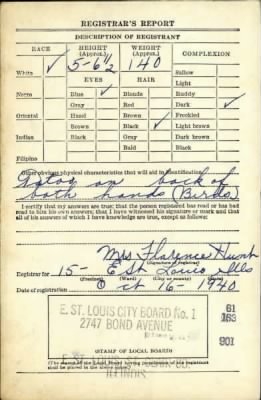 REGISTRAR'S REPORT
DESCRIPTION OF REGISTRANT
RACE HEIGHT (Approx.) WEIGHT (Approx.) COMPLEXION
White ✓ 5-6½ 140 Sallow
EYES HAIR Light
Negro Blue ✓ Blonde Ruddy
Gray Red Dark ✓
Oriental Hazel Brown Freckled
Brown Black ✓ Light brown
Indian Black Gray Dark brown
Bald Black
Filipino
Other obvious physical characteristics that will aid in identification
Tatoo on back of
both hands (Birds)
I certify that my answers are true; that the person registered has read or has had
read to him his own answers; that I have witnessed his signature or mark and that
all of his answers of which I have knowledge are true, except as follows:
Mrs Florence Hunt
(Signature of registrar)
Registrar for 15- E St. Louis Ills
(Precinct) (Ward) (City or county) (State)
Date of registration Oct 16-1940
E. ST. LOUIS CITY BOARD No. 1
2747 BOND AVENUE
61
163
901
E. ST. LOUIS, ST. CLAIR CO.
ILLINOIS
STAMP OF LOCAL BOARD
shall be placed in the above space.)